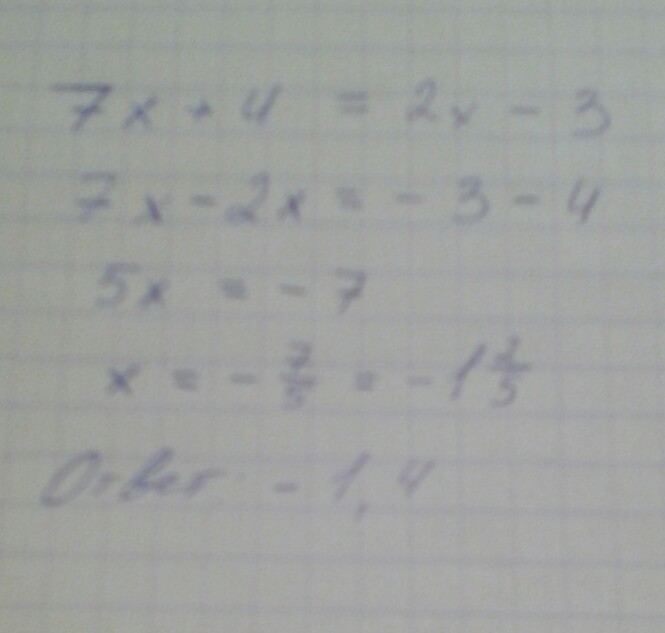 7x + 4 = 2x - 3
7x - 2x = - 3 - 4
5x = - 7
x = - 7/5 = - 1 2/5
Ответ - 1,4